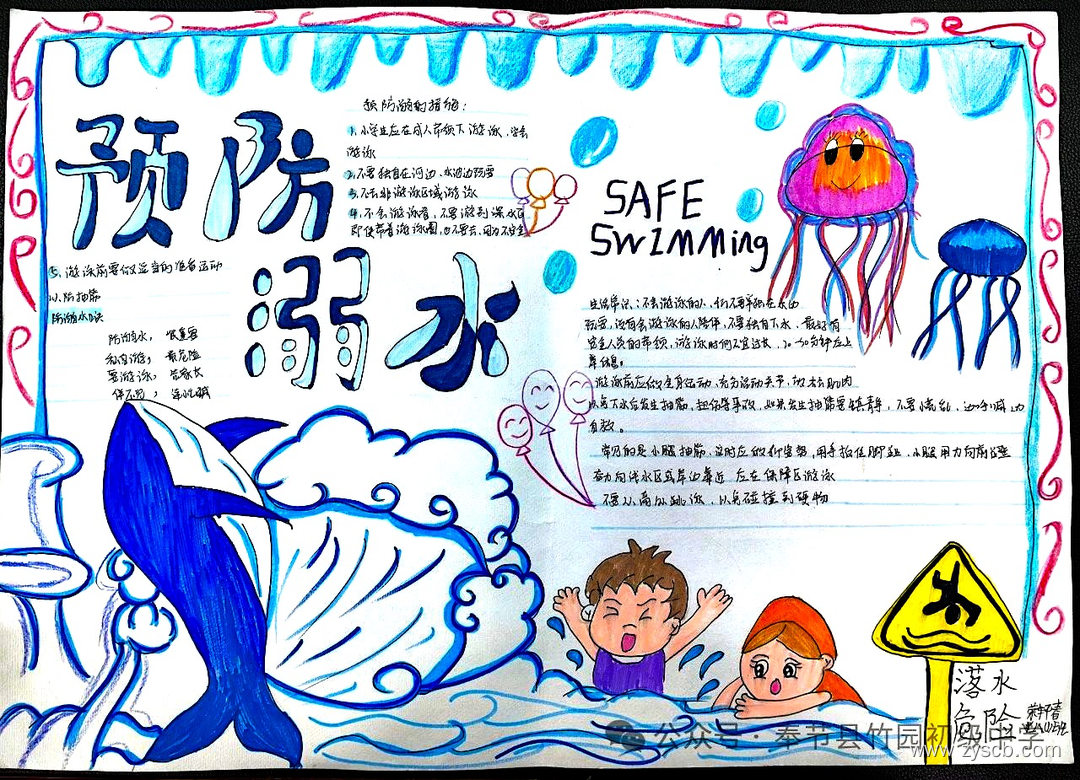 预防
溺水
预防溺水的措施：
1、小学生应在成人带领下游泳，学会
游泳
2、不要独自在河边、水池边玩耍
3、不去非游泳区域游泳
4、不会游泳者，不要游到深水区
即使带着游泳圈，也不要去，因为不安全
⑤、游泳前要做适当的准备运动
以防抽筋
防溺水口诀
防溺水，很重要
私自游，最危险
要游泳，
SAFE
SWIMMing
生活常识：不会游泳的人，
玩耍，没有会游泳的人陪伴，不要独自下水，最好有
安全人员的带领，游泳时间不宜过长，20-30分钟应上
岸休息。
游泳前应做全身运动，充分活动关节，
以免下水后发生抽筋，扭伤等事故，如果发生抽筋要镇静，不要慌乱，边呼喊边
自救。
常见的是小腿抽筋，这时应做仰泳姿势，用手扳住脚趾，小腿用力向前
奋力向浅水区或岸边靠近 应在保障区游泳
不要从高处跳泳，以免碰撞到硬物
落水
危险
公众号·奉节县竹园初级中学
www.zyscb.com